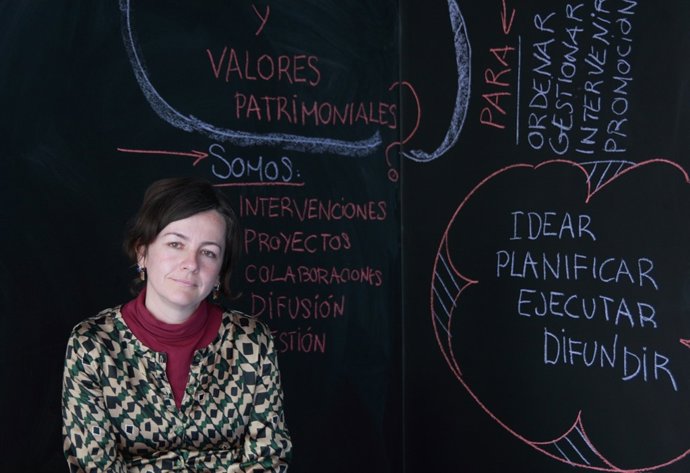 Y
VALORES
PATRIMONIALES
?
SOMOS:
INTERVENCIONES
PROYECTOS
COLABORACIONES
DIFUSIÓN
PARA
ORDENAR
GESTIONAR
INTERVENIR
PROMOCIÓN
IDEAR
PLANIFICAR
EJECUTAR
DIFUNDIR